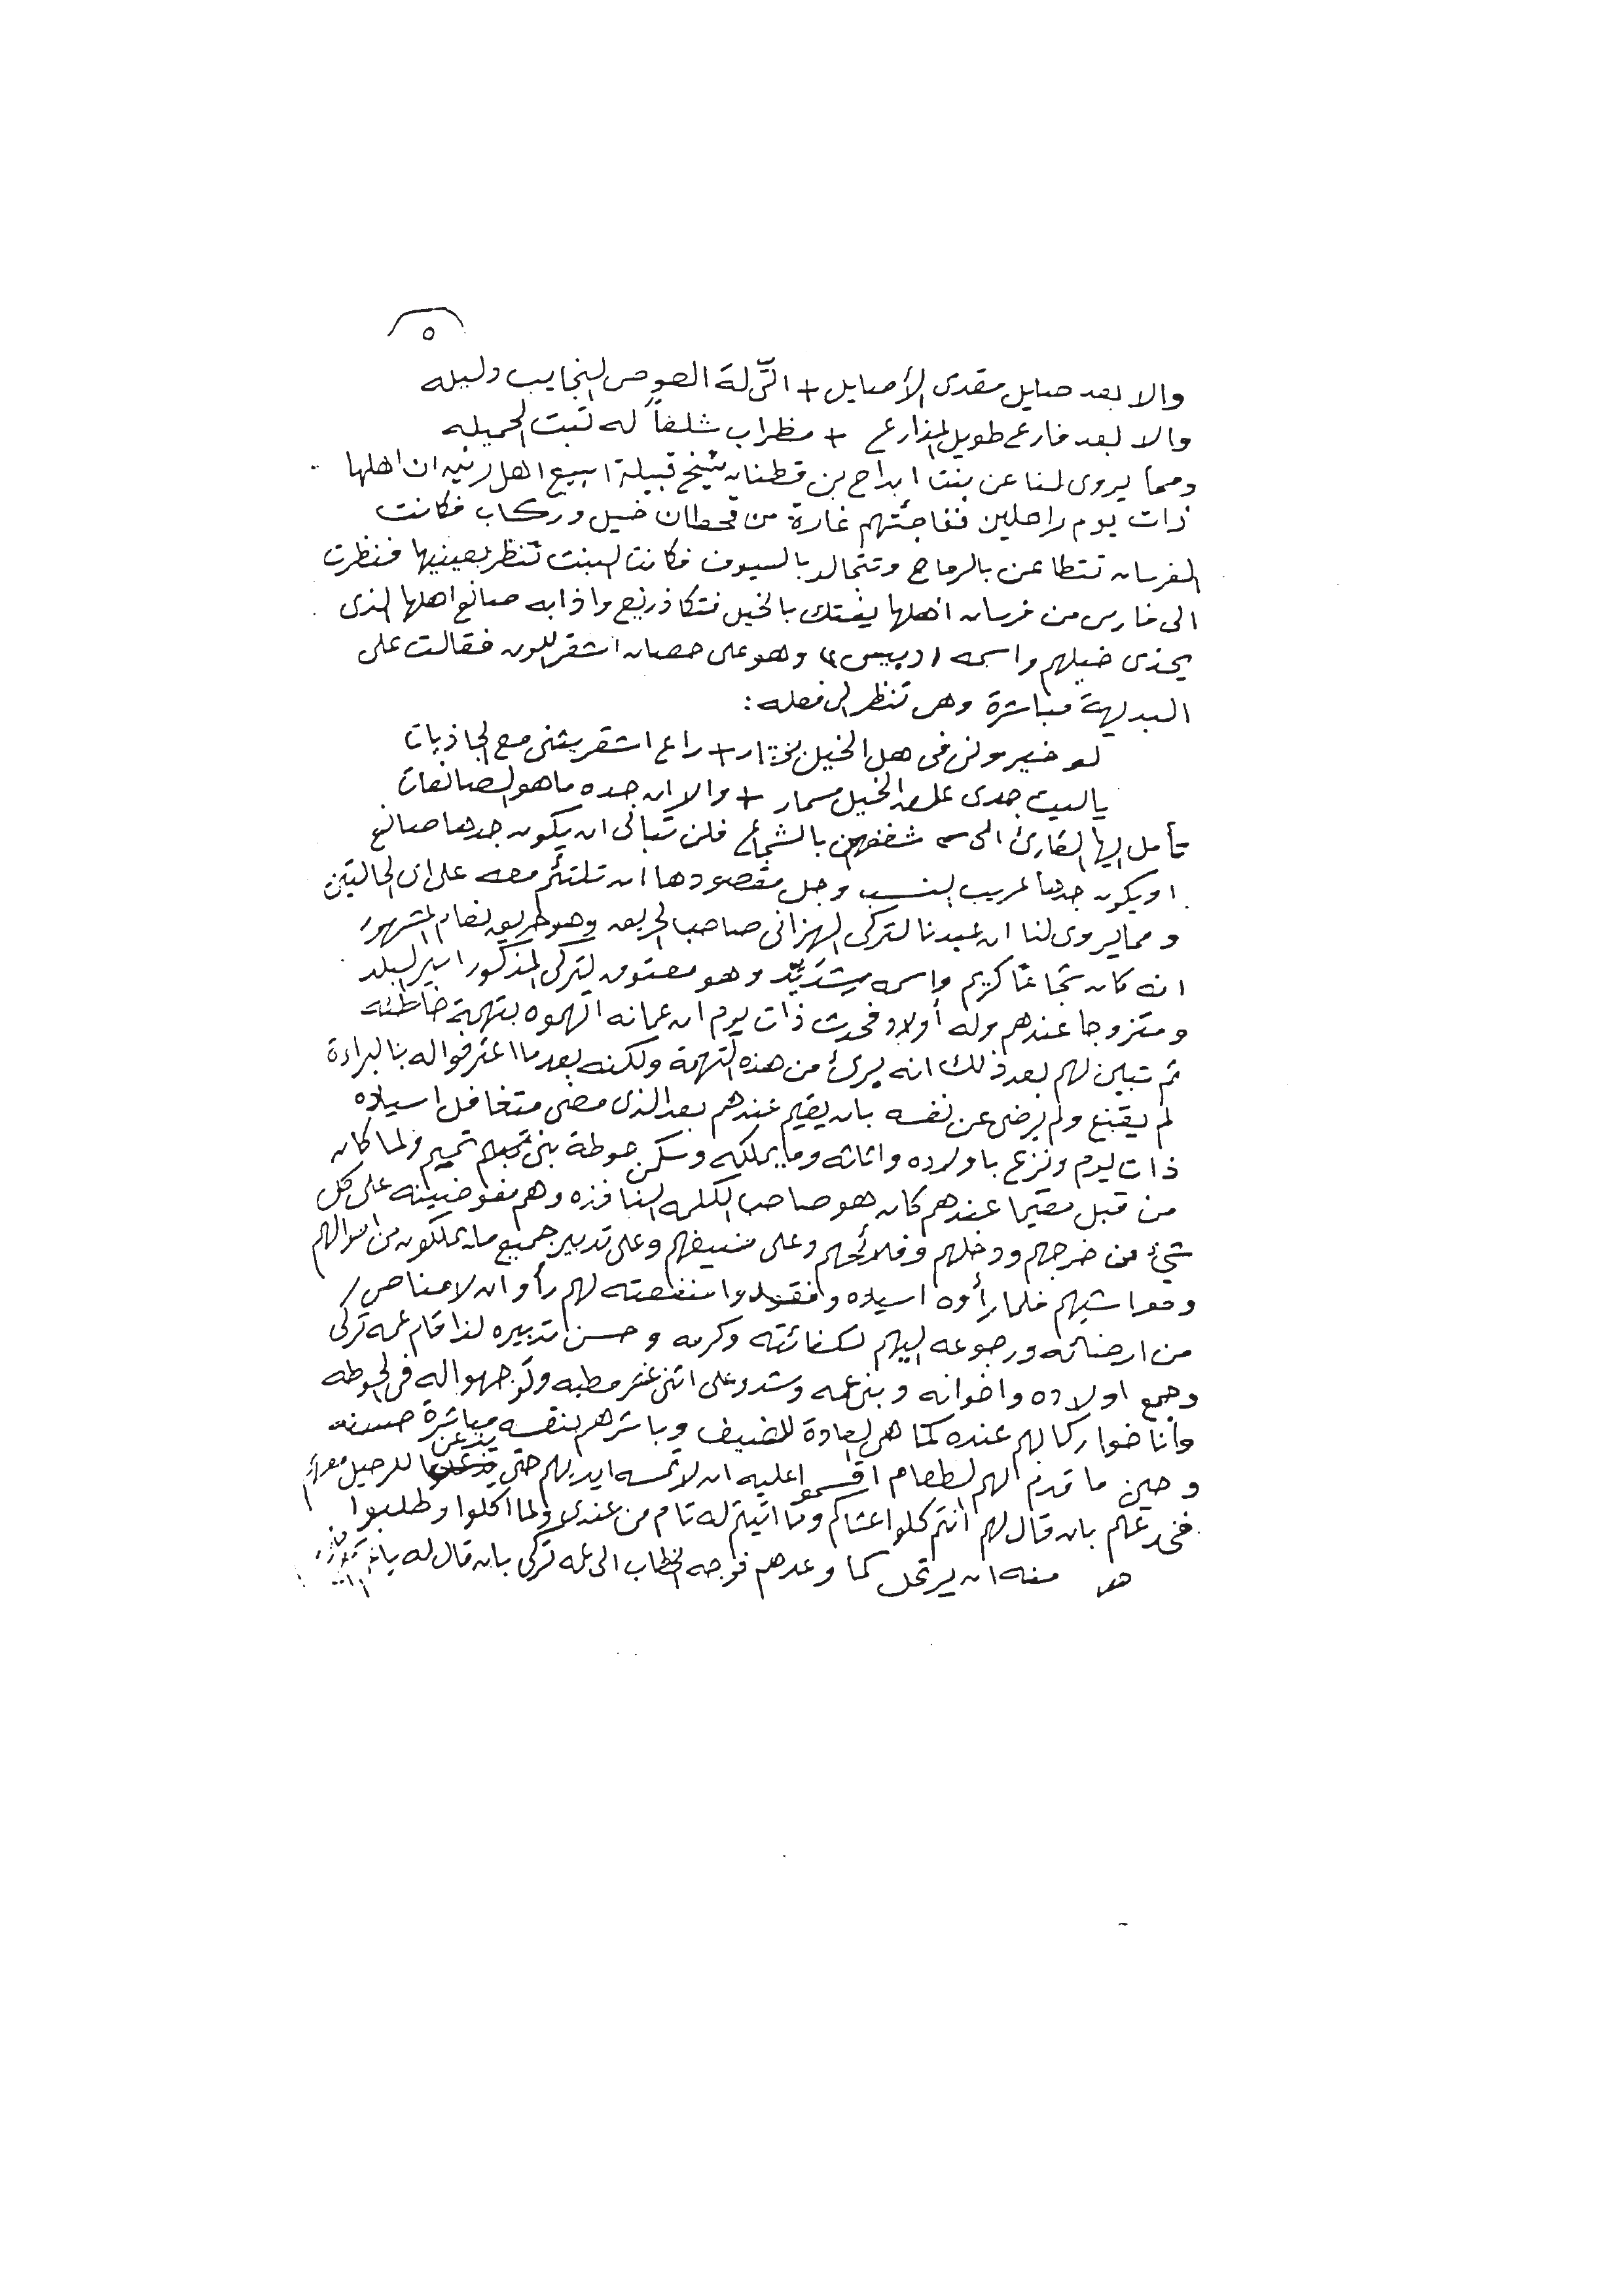 ٥
والا بعد صايل مقدى الأصايل + اللّى له الصوص النجايب دليله
والا بعد فارع طويل المذارع + مظراب شلفاً له تبت الجميله
ومما يروى لنا عن بنت ابداح بن قطنان شيخ قبيلة اسبيع اهل رنيه ان اهلها
ذات يوم راحلين ففاجئتهم غارة من قحطان خيل وركاب فكانت
الفرسان تتطاعن بالرماح وتتجالد بالسيوف فكانت البنت تنظر بعينيها فنظرت
الى فارس من فرسان اهلها يفتك بالخيل فتكا ذريع واذا به صانع اهلها الذى
يحذى خيلهم واسمه (دبيس) وهو على حصان اشقر اللون فقالت على
البديهة مباشرة وهى تنظر الى فعله:
لو خيرونى فى هل الخيل بختار + راع اشقر يثنى مع الجاذبات
ياليت جدى علق الخيل مسمار + والا ان جده ماهو لصانعات
تأمل ايها القارئ الى شغفهن بالشجاع فلن تبالى ان يكون جدها صانع
او يكون جدها عريب النسب وجل مقصودها ان تلتئم معه على اى الحالتين
ومما يروى لنا ان عبدنا لتركى الهزانى صاحب الحريق وهو حريق نعام المشهور
انه كان شجاعًا كريم واسمه وهو معتوق لتركى المذكور امير البلد
ومتزوجا عندهم وله أولاد فحدث ذات يوم ان عمانه اتهموه بتهمة خاطئه
ثم تبين لهم بعد ذلك انه برئ من هذه التهمة ولكنه بعد ما اعترفوا له بنا البراءة
لم يقتنع ولم يرضى عن نفسه بان يقيم عندهم بعد الذى مضى متغافل اسياده
ذات يوم ونزع باولاده واثاثه وما يملكه وسكن حوطة بنى تميم ولما كان
من قبل مقيما عندهم كان هو صاحب الكلمه النافذه وهم مفوضينه على كل
شئ من خرجهم ودخلهم وفلائحهم وعلى مضيفهم وعلى تدبير جميع ما يملكون من اموالهم
ومواشيهم فلما رأوه اسياده وافقدوا منفعته لهم رأو ان لا مناص /
من ارضائه ورجوعه اليهم لكفائته وكرمه وحسن تدبيره لذا قام عمه تركى
وجمع اولاده واخوانه وبنى عمه وشدو على اثنى عشر مطيه وتوجهوا له فى الحوطه
وأناخوا ركابهم عنده كما هى العادة للضيف وباشرهم بنفسه مباشرة حسنه
وحين ما قدم لهم الطعام اقسموا عليه ان لا تمسه ايديهم حتى يذعن للرحيل معهم
فخدعهم بان قال لهم انتم كلوا عشاكم وما اتيتم له تام من عندى ولما اكلوا وطلبوا
منه ان يرتحل كما وعدهم فوجه الخطاب الى عمه تركى بان قال له
هو